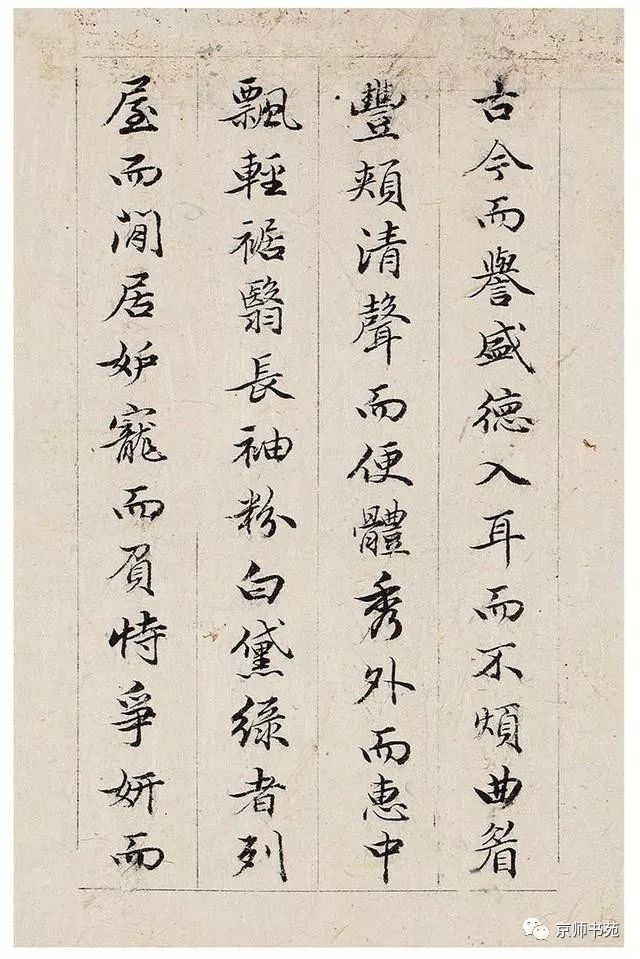 古今而譽盛德入耳而不煩曲眉
豐頰清聲而便體秀外而惠中
飄輕裾翳長袖粉白黛綠者列
屋而閒居妒寵而負恃爭妍而
京师书苑